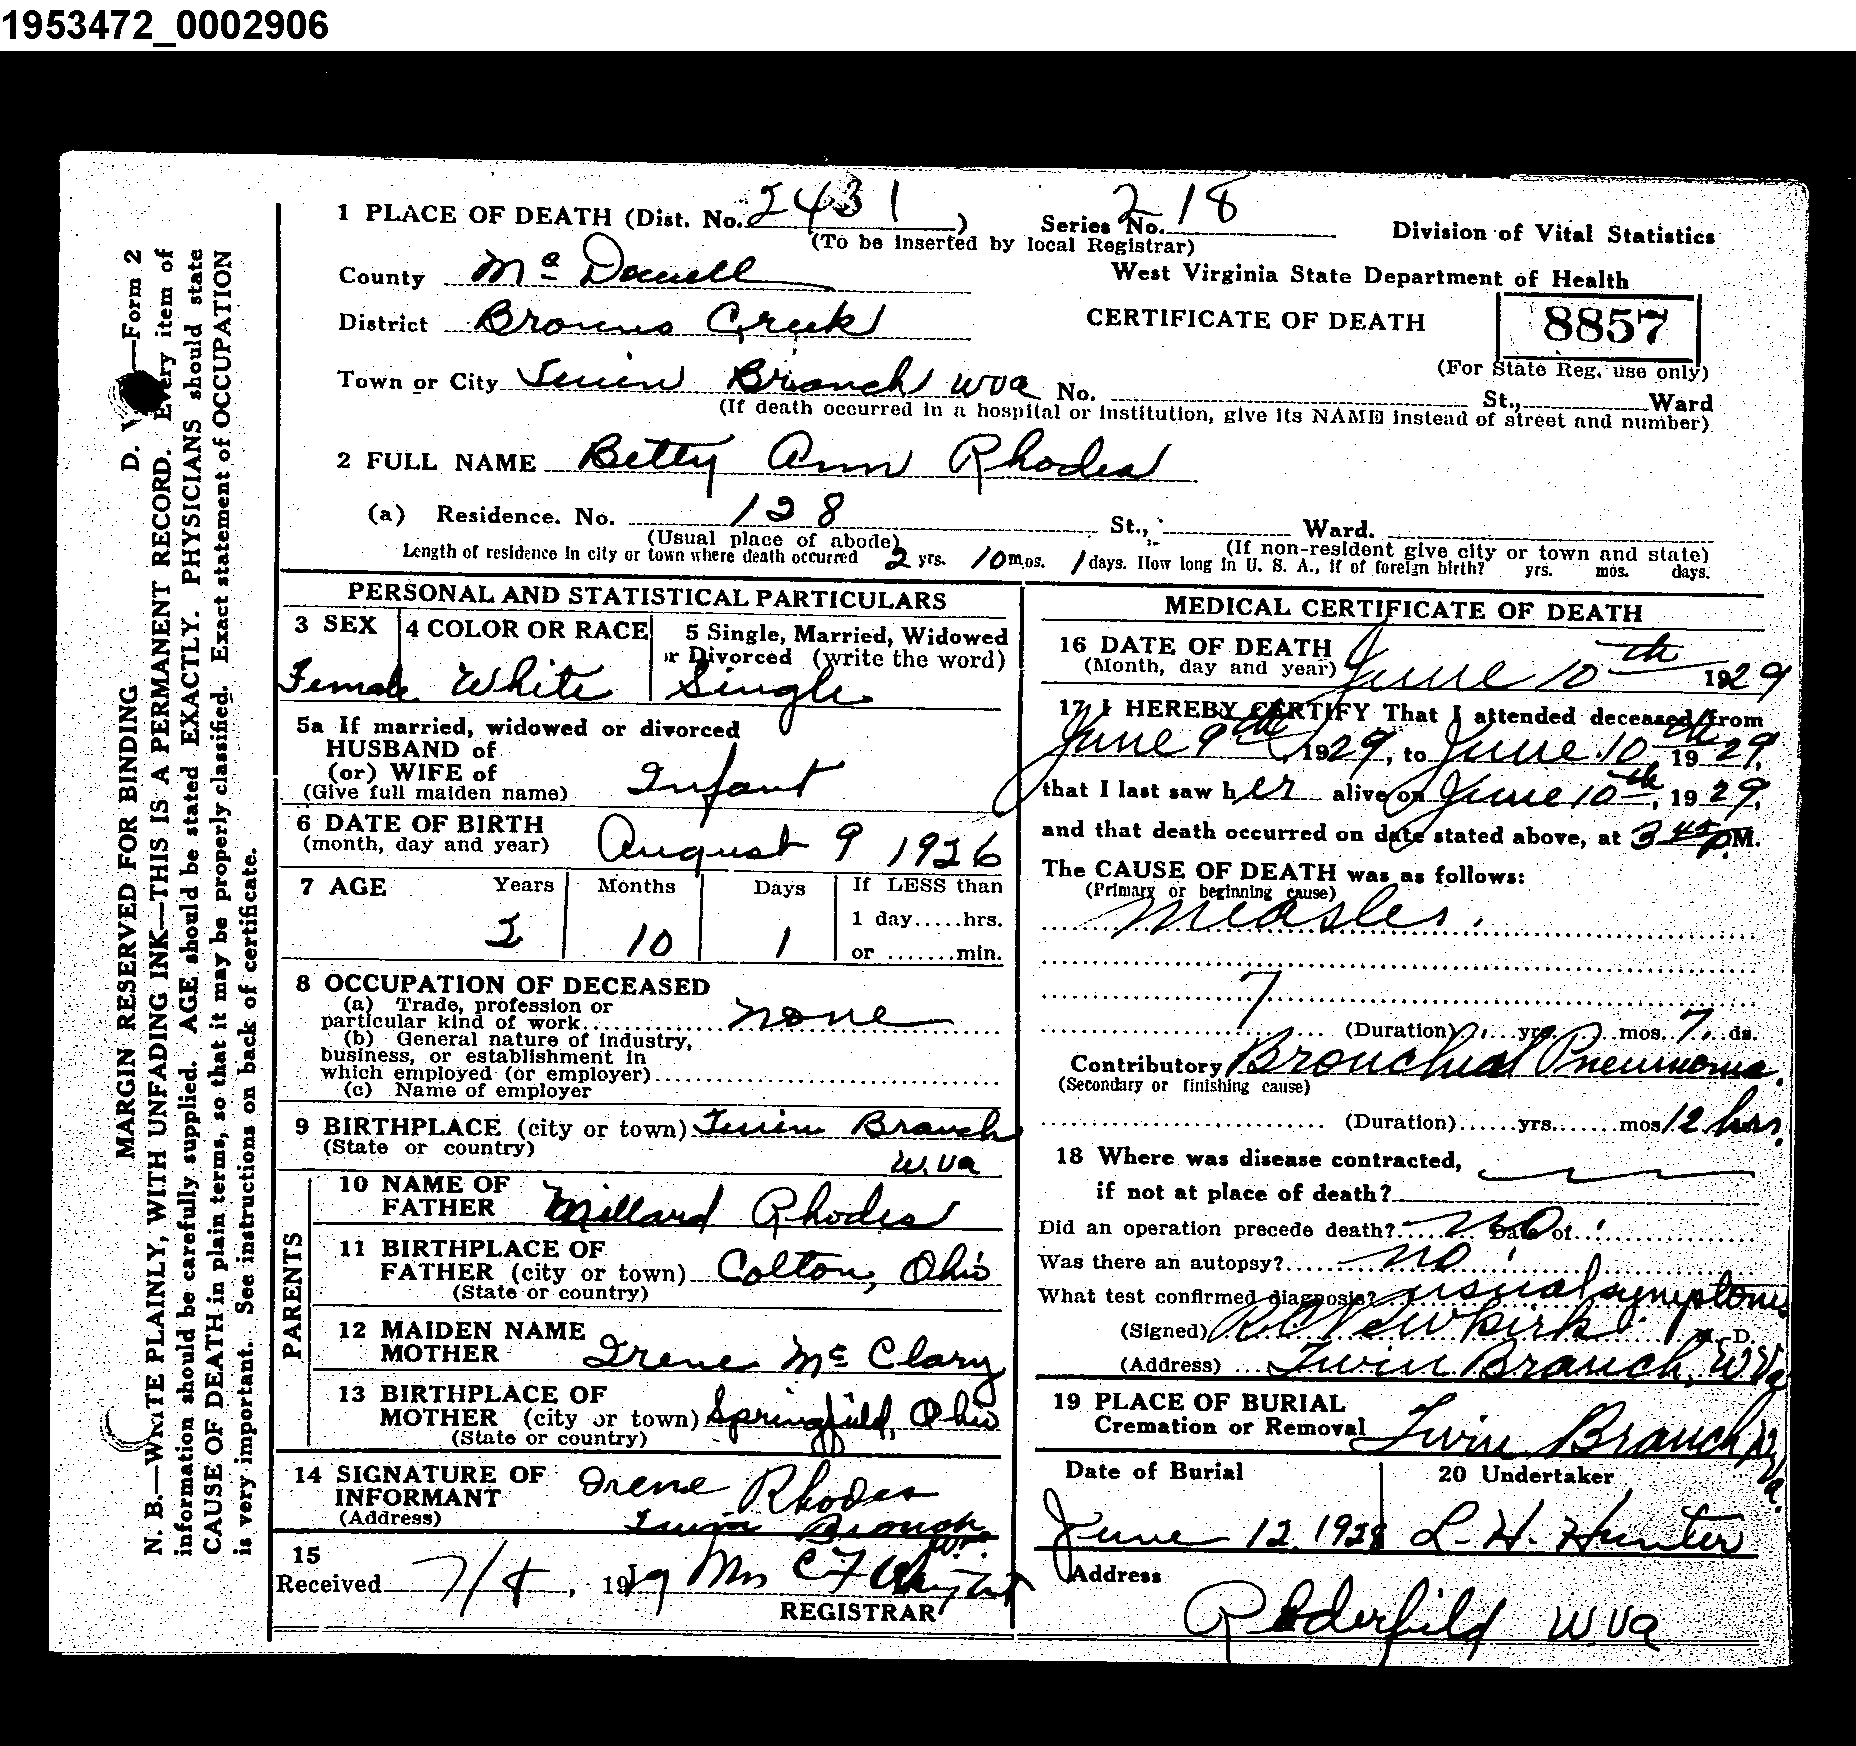 1953472_0002906
1 PLACE OF DEATH (Dist. No. 2431 )
Series No. 218
(To be inserted by local Registrar)
Division of Vital Statistics
West Virginia State Department of Health
CERTIFICATE OF DEATH
8857
(For State Reg. use only)
County Mc Dowell
District Browns Creek
Town or City Twin Branch WVa No. St., Ward
(If death occurred in a hospital or institution, give its NAME instead of street and number)
2 FULL NAME Betty Ann Rhodes
(a) Residence. No. 128 St., Ward.
(Usual place of abode)
(If non-resident give city or town and state)
Length of residence in city or town where death occurred 2 yrs. 10 mos. 1 days. How long in U. S. A., if of foreign birth? yrs. mos. days.
PERSONAL AND STATISTICAL PARTICULARS
3 SEX
Female
4 COLOR OR RACE
White
5 Single, Married, Widowed
or Divorced (write the word)
Single
5a If married, widowed or divorced
HUSBAND of
(or) WIFE of
(Give full maiden name) Infant
6 DATE OF BIRTH
(month, day and year) August 9 1926
7 AGE Years Months Days If LESS than
1 day.....hrs.
2 10 1 or .......min.
8 OCCUPATION OF DECEASED
(a) Trade, profession or
particular kind of work none
(b) General nature of industry,
business, or establishment in
which employed (or employer)
(c) Name of employer
9 BIRTHPLACE (city or town) Twin Branch
(State or country) W.Va
PARENTS
10 NAME OF
FATHER Millard Rhodes
11 BIRTHPLACE OF
FATHER (city or town) Colton, Ohio
(State or country)
12 MAIDEN NAME
MOTHER Irene Mc Clary
13 BIRTHPLACE OF
MOTHER (city or town) Springfield, Ohio
(State or country)
14 SIGNATURE OF
INFORMANT Irene Rhodes
(Address) Twin Branch W.
15
Received 7/4, 1929 Mrs C F
REGISTRAR
MEDICAL CERTIFICATE OF DEATH
16 DATE OF DEATH
(Month, day and year) June 10th 1929
17 I HEREBY CERTIFY That I attended deceased from
June 9th, 1929, to June 10th 1929,
that I last saw her alive on June 10th, 1929,
and that death occurred on date stated above, at 3 45 P.M.
The CAUSE OF DEATH was as follows:
(Primary or beginning cause)
Measles.
7
(Duration) yrs. mos. 7 ds.
Contributory Bronchial Pneumonia.
(Secondary or finishing cause)
(Duration) yrs. mos 12 hrs.
18 Where was disease contracted,
if not at place of death?
Did an operation precede death? No Date of
Was there an autopsy? no
What test confirmed diagnosis? usual symptoms
(Signed) R C Newkirk M. D.
(Address) Twin Branch, W Va
19 PLACE OF BURIAL
Cremation or Removal Twin Branch W Va.
Date of Burial
June 12, 1928
20 Undertaker
L. H. Hunter
Address
Roderfield W.Va
MARGIN RESERVED FOR BINDING D. —Form 2
N. B.—WRITE PLAINLY, WITH UNFADING INK—THIS IS A PERMANENT RECORD. Every item of
information should be carefully supplied. AGE should be stated EXACTLY. PHYSICIANS should state
CAUSE OF DEATH in plain terms, so that it may be properly classified. Exact statement of OCCUPATION
is very important. See instructions on back of certificate.